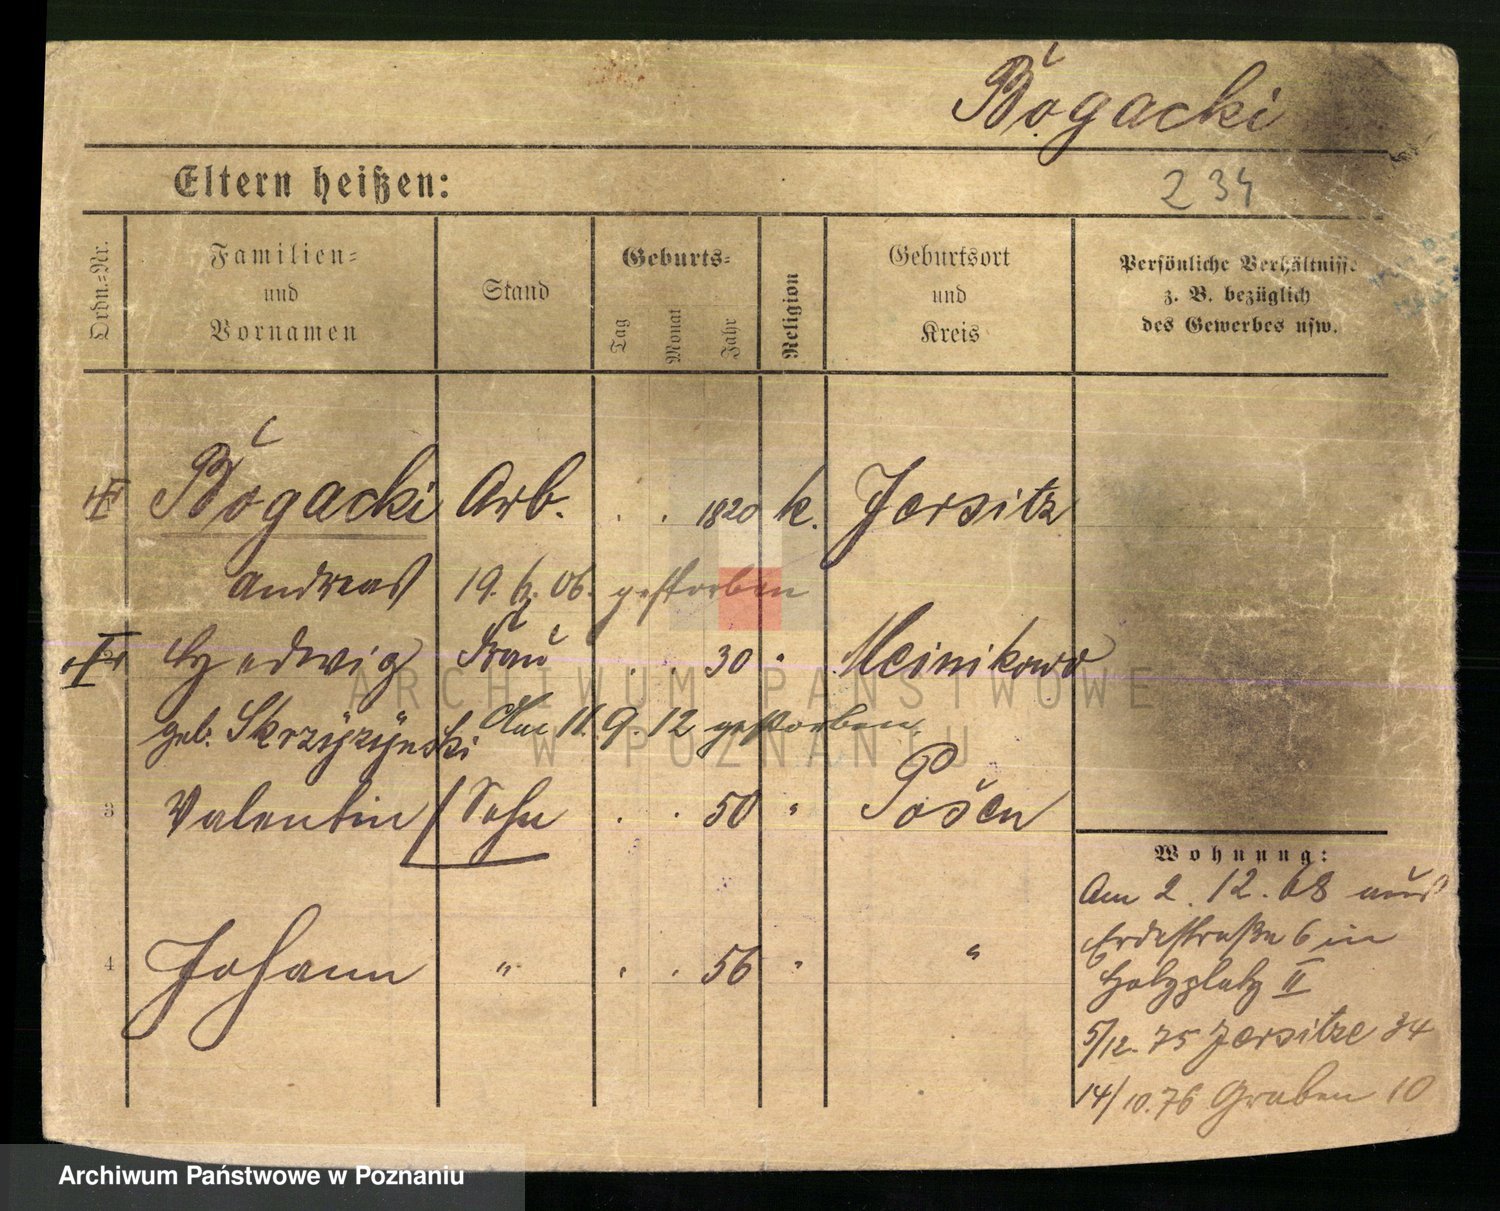 Bogacki
Eltern heißen:
234
Ordn.-Nr.
Familien-
und
Vornamen
Stand
Geburts-
Tag
Monat
Jahr
Religion
Geburtsort
und
Kreis
Persönliche Verhältnisse
z. B. bezüglich
des Gewerbes usw.
Bogacki Arb. . . 1820 k. Jersitz
Andreas 19. 6. 06. gestorben
Hedwig Frau . . 30 " Meinikowo
geb. Skrzÿzÿnski Am 11. 9. 12 gestorben
3 Valentin Sohn . . 50 " Posen
4 Johann " . . 56 " "
Wohnung:
Am 2. 12. 68 aus
6 in
Holzplatz II
5/12. 75 Jersitze 34
14/10. 76 Graben 10
ARCHIWUM PAŃSTWOWE
W POZNANIU
Archiwum Państwowe w Poznaniu